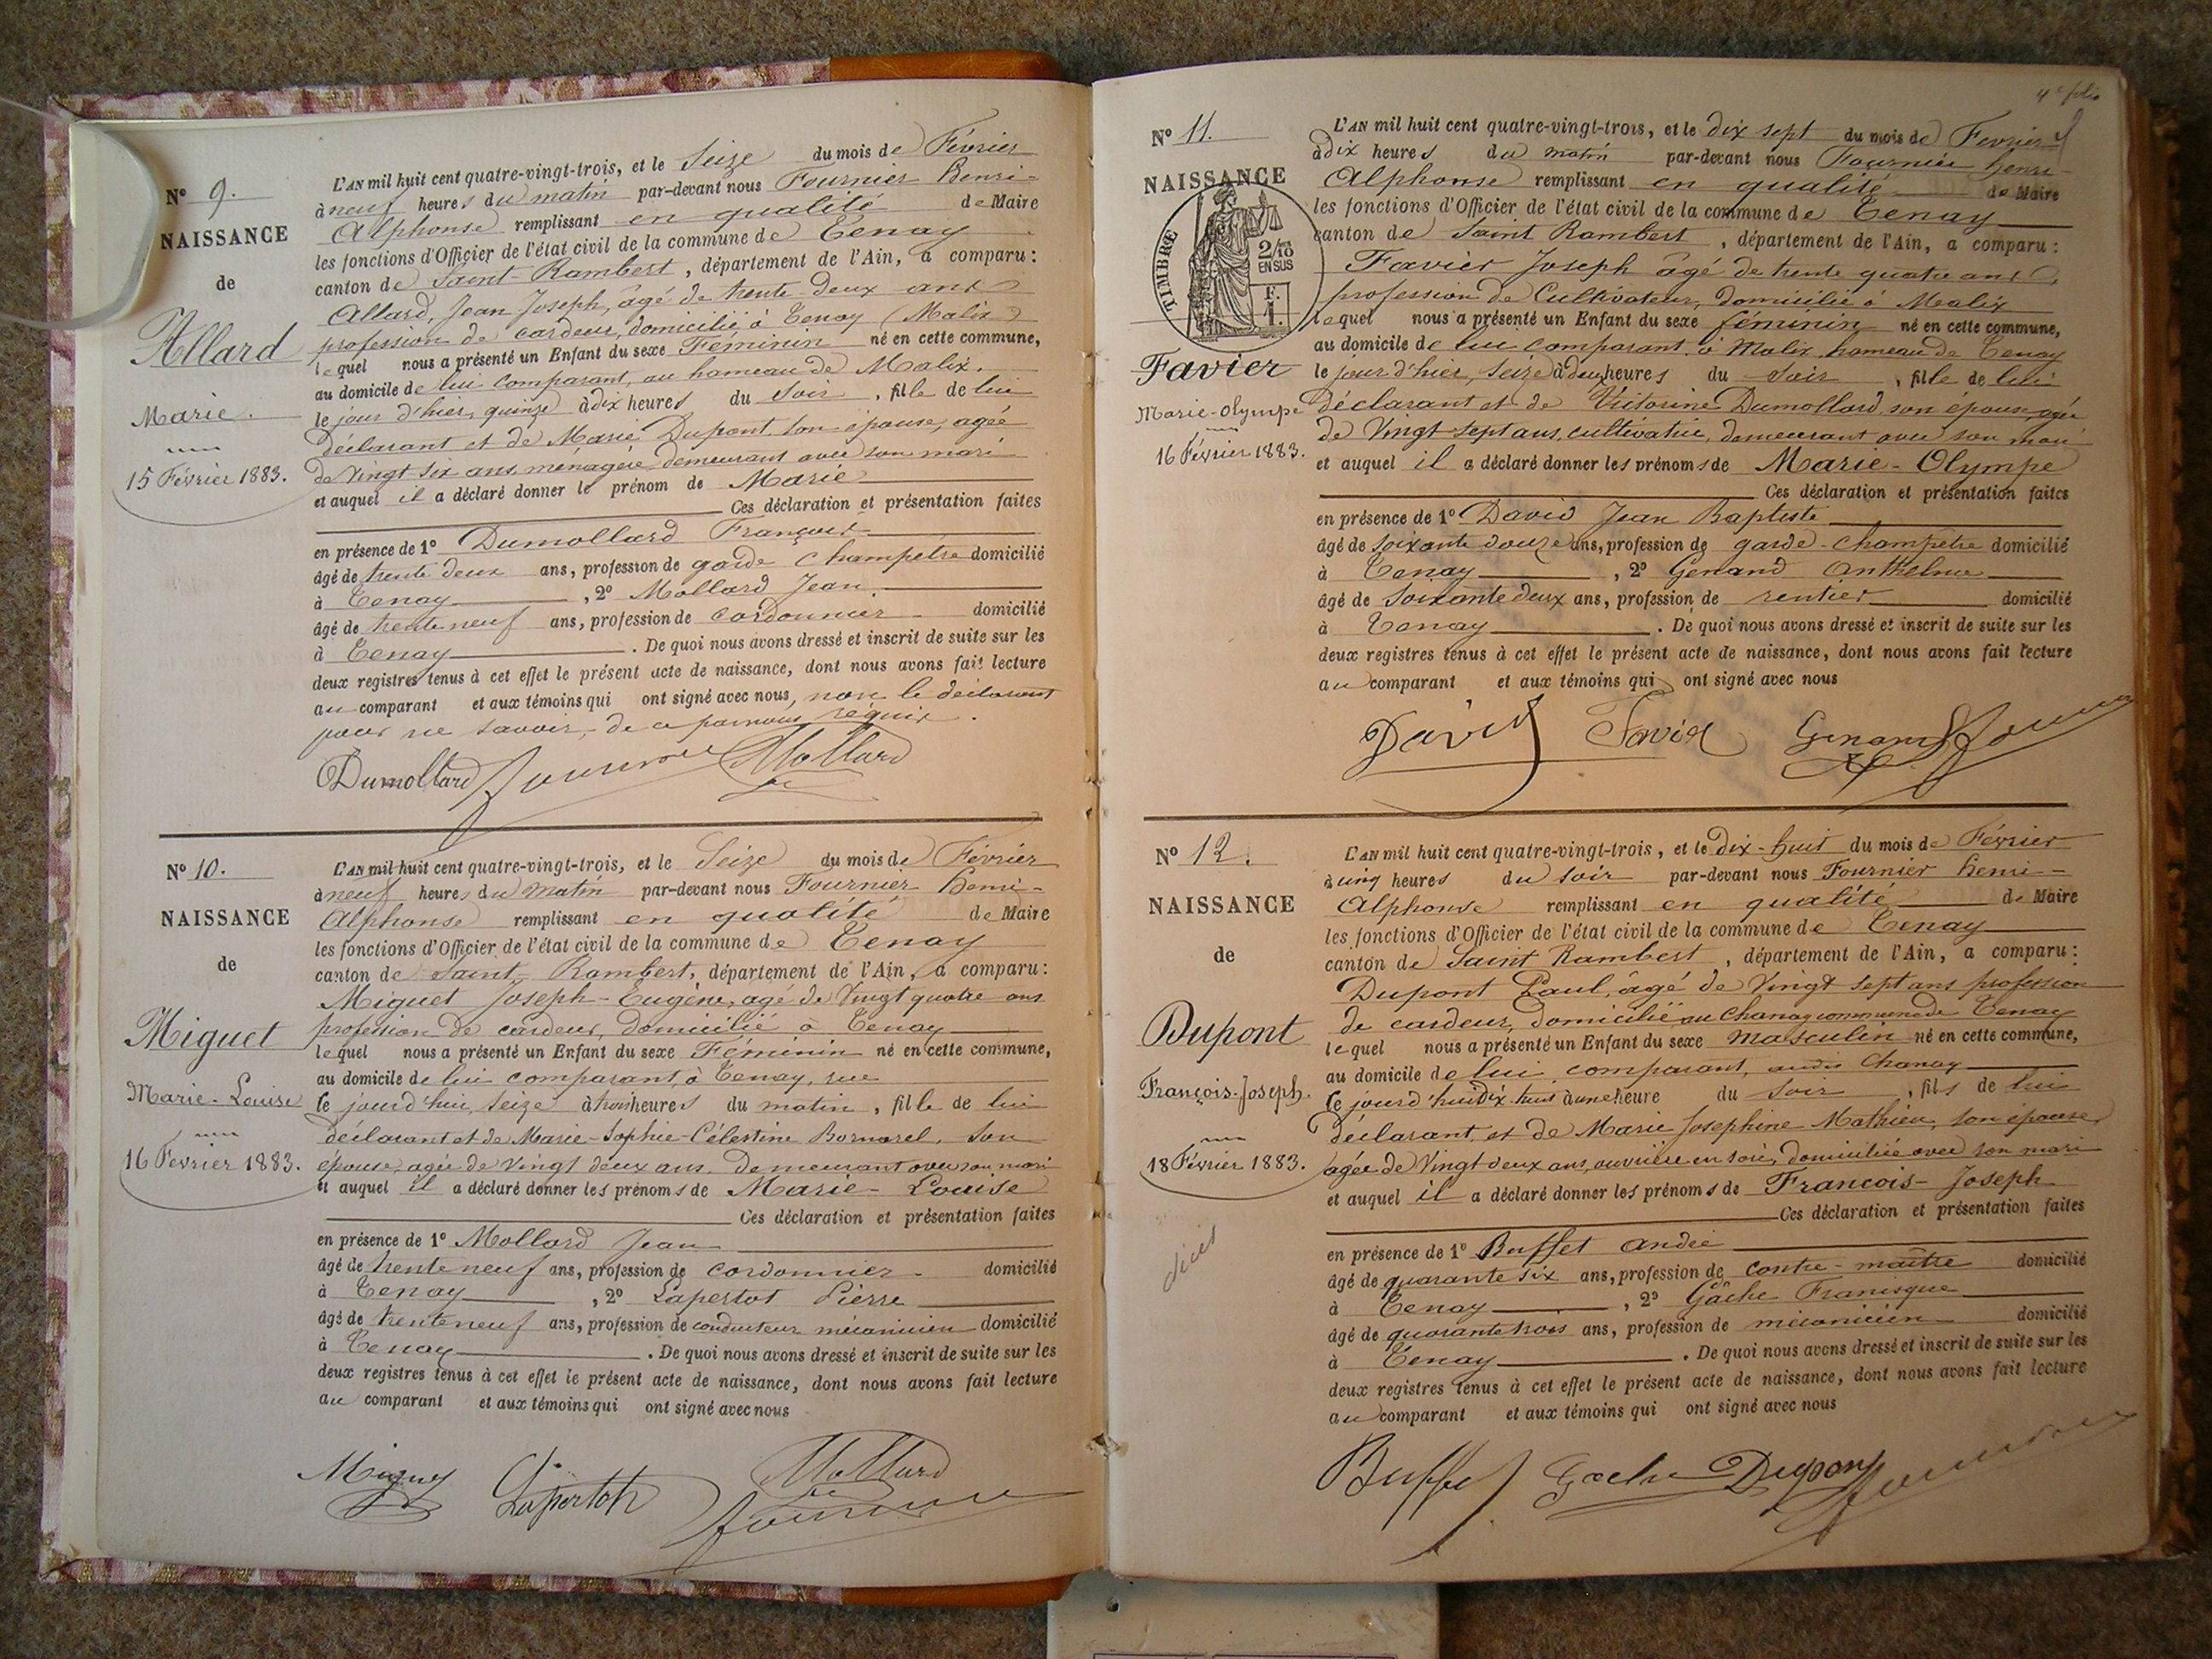 Nº 9.
NAISSANCE
de
Allard
Marie.
15 Février 1883.
L'AN mil huit cent quatre-vingt-trois, et le Seize du mois de Février
à neuf heures du matin par-devant nous Fournier Henri-
Alphonse remplissant en qualité de Maire
les fonctions d'Officier de l'état civil de la commune de Tenay
canton de Saint-Rambert, département de l'Ain, a comparu:
Allard, Jean Joseph, âgé de trente deux ans
profession de cardeur, domicilié à Tenay (Malix)
lequel nous a présenté un Enfant du sexe Féminin né en cette commune,
au domicile de lui comparant, au hameau de Malix.
le jour d'hier, quinze à dix heures du soir, fille de lui
déclarant et de Marie Dupont son épouse, agée
de Vingt six ans ménagère demeurant avec son mari
et auquel il a déclaré donner le prénom de Marie
Ces déclaration et présentation faites
en présence de 1º Dumollard François
âgé de trente deux ans, profession de garde champêtre domicilié
à Tenay, 2º Mollard Jean.
âgé de trente neuf ans, profession de cordonnier domicilié
à Tenay. De quoi nous avons dressé et inscrit de suite sur les
deux registres tenus à cet effet le présent acte de naissance, dont nous avons fait lecture
au comparant et aux témoins qui ont signé avec nous, non le déclarant
pour ne savoir, de ce par nous réquis.
Dumollard Fournier Mollard
Nº 10.
NAISSANCE
de
Miguet
Marie-Louise
16 Février 1883.
L'AN mil huit cent quatre-vingt-trois, et le Seize du mois de Février
à neuf heures du matin par-devant nous Fournier Henri-
Alphonse remplissant en qualité de Maire
les fonctions d'Officier de l'état civil de la commune de Tenay
canton de Saint-Rambert, département de l'Ain, a comparu:
Miguet Joseph-Eugène, agé de Vingt quatre ans
profession de cardeur, domicilié à Tenay
lequel nous a présenté un Enfant du sexe Féminin né en cette commune,
au domicile de lui comparant, à Tenay, rue
le jourd'hui, seize à trois heures du matin, fille de lui
déclarant et de Marie-Sophie-Célestine Bornarel, son
épouse, agée de Vingt deux ans. Demeurant avec son mari
et auquel il a déclaré donner les prénoms de Marie-Louise
Ces déclaration et présentation faites
en présence de 1º Mollard Jean
âgé de trente neuf ans, profession de cordonnier domicilié
à Tenay, 2º Lapertot Pierre
âgé de trente neuf ans, profession de conducteur mécanicien domicilié
à Tenay. De quoi nous avons dressé et inscrit de suite sur les
deux registres tenus à cet effet le présent acte de naissance, dont nous avons fait lecture
au comparant et aux témoins qui ont signé avec nous
Miguet Lapertot Mollard
Fournier
4e folio
Nº 11.
NAISSANCE
TIMBRE
2/10
EN SUS
Favier
Marie-Olympe
16 Février 1883.
L'AN mil huit cent quatre-vingt-trois, et le dix sept du mois de Fevrier
à dix heures du matin par-devant nous Fournier Henri-
Alphonse remplissant en qualité de Maire
les fonctions d'Officier de l'état civil de la commune de Tenay
canton de Saint Rambert, département de l'Ain, a comparu:
Favier Joseph âgé de trente quatre ans,
profession de Cultivateur, domicilié à Malix
lequel nous a présenté un Enfant du sexe féminin né en cette commune,
au domicile de lui comparant à Malix hameau de Tenay
le jour d'hier, seize à deux heures du soir, fille de lui
déclarant et de Victorine Dumollard son épouse, agée
de Vingt sept ans, cultivatrice, demeurant avec son mari
et auquel il a déclaré donner les prénoms de Marie-Olympe
Ces déclaration et présentation faites
en présence de 1º David Jean Baptiste
âgé de soixante douze ans, profession de garde-champêtre domicilié
à Tenay, 2º Genand Anthelme
âgé de soixante deux ans, profession de rentier domicilié
à Tenay. De quoi nous avons dressé et inscrit de suite sur les
deux registres tenus à cet effet le présent acte de naissance, dont nous avons fait lecture
au comparant et aux témoins qui ont signé avec nous
David Favier Genand Fournier
Nº 12.
NAISSANCE
de
Dupont
François-Joseph.
18 Février 1883.
L'AN mil huit cent quatre-vingt-trois, et le dix-huit du mois de Février
à cinq heures du soir par-devant nous Fournier Henri-
Alphonse remplissant en qualité de Maire
les fonctions d'Officier de l'état civil de la commune de Tenay
canton de Saint Rambert, département de l'Ain, a comparu:
Dupont Paul, âgé de Vingt sept ans profession
de cardeur, domicilié au Chanay commune de Tenay
lequel nous a présenté un Enfant du sexe masculin né en cette commune,
au domicile de lui comparant, audit Chanay
le jourd'hui dix-huit à une heure du soir, fils de lui
déclarant, et de Marie Josephine Mathieu, son épouse,
agée de Vingt deux ans, ouvrière en soie, domiciliée avec son mari
et auquel il a déclaré donner les prénoms de François-Joseph
Ces déclaration et présentation faites
en présence de 1º Buffet André
âgé de quarante six ans, profession de contre-maître domicilié
à Tenay, 2º Gâche Francisque
âgé de quarante trois ans, profession de mécanicien domicilié
à Tenay. De quoi nous avons dressé et inscrit de suite sur les
deux registres tenus à cet effet le présent acte de naissance, dont nous avons fait lecture
au comparant et aux témoins qui ont signé avec nous
Buffet Gache Dupont Fournier